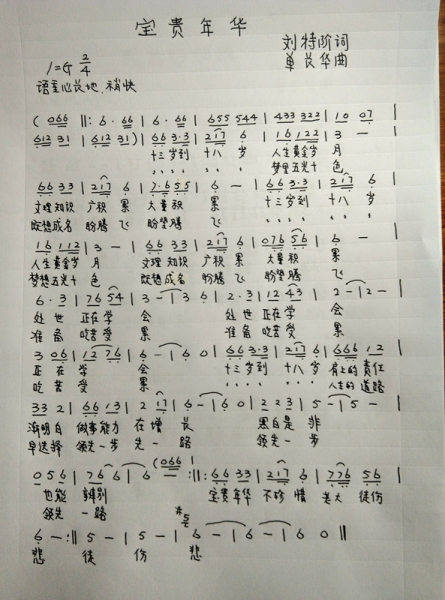 宝贵年华
刘特阶词
1=G 2/4
单良华曲
语重心长地 稍快
( 066 ||: 6·66 | 6·66 | 655 544 | 433 322 | 10 07 |
612 31 | 612 31 ) | 66 3·3 | 217 6 | 16 122 | 3 — |
十三岁到 十八 岁 人生黄金岁 月
梦里五光十 色
66 33 | 217 6 | 7·6 55 | 6 — | 66 3·3 | 217 6 |
文理知识 广积 累 大量积 累 十三岁到 十八 岁
既想成名 盼腾 飞 盼望腾 飞
16 112 | 3 — | 66 33 | 217 6 | 076 56 | 6 — |
人生黄金岁 月 文理知识 广积 累 大量积 累
梦想五光十 色 既想成名 盼腾 飞 盼望腾 飞
6·3 | 76 54 | 3 — | 3 6 | 2·3 | 12 43 | 2 — | 2 — |
处世 正在学 会 处世 正在学 会
准备 吃苦受 累 准备 吃苦受 累
3 06 | 12 76 | 6 — | 6 0 | 66 3·3 | 217 6 | 666 12 |
正 在 学 会 十三岁到 十八 岁 肩上的 责任
吃 苦 受 累 人生的 道路
33 2 | 66 13 | 2 17 | 6 — | 6 0 | 2 2 3 | 5 — | 5 — |
渐明白 做事能力 在 增 长 愚自是 非
早选择 领先一步 先一 路 领先一 步
056 | 76 6 | 6 (066 :||: 66 33 | 217 6 | 776 56 |
也能 辨别 宝贵年华 不珍 惜 老大 徒伤
领先 一路
6 — :|| 5 — | 5 — | 6 — | 6 — | 6 — | 6 0 ||
悲 徒 伤 悲